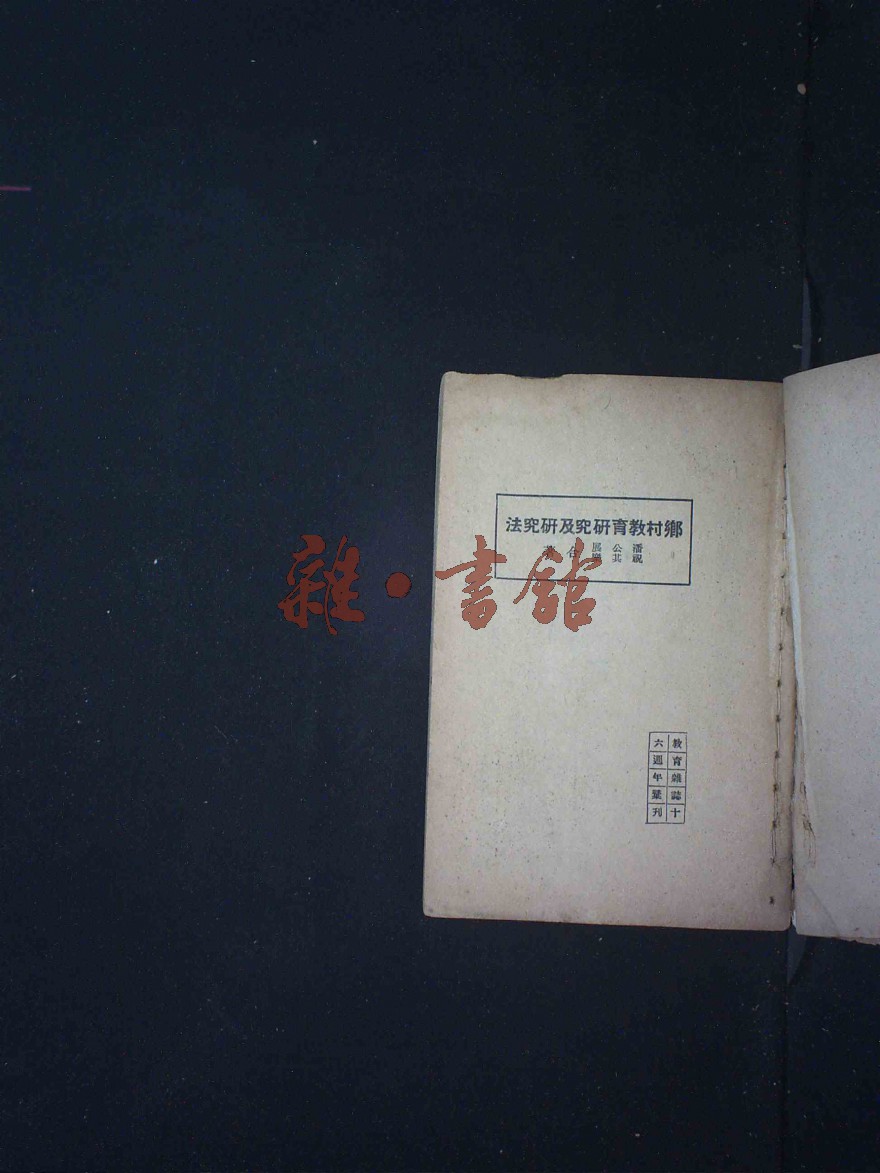 鄉村教育研究及研究法
潘公展
祝其樂
合
雜·書館
教育雜誌十
六週年彙刊